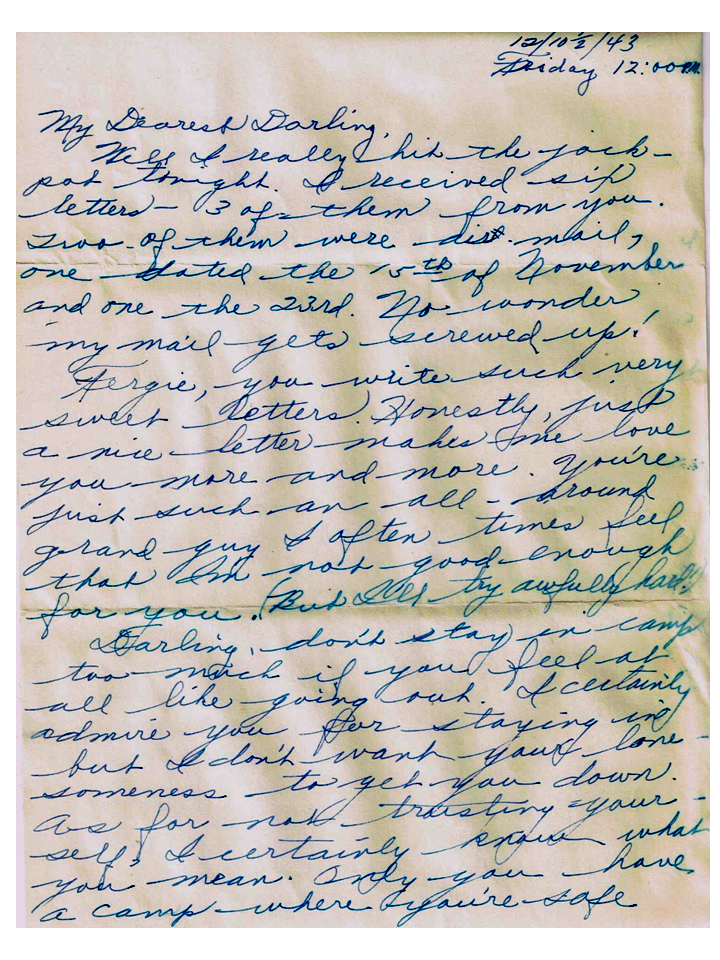 12/10½/43
Friday 12:00 P.M.
My Dearest Darling,
Well I really hit the jack-
pot tonight. I received six
letters - 3 of them from you.
Two of them were mail,
one dated the 15th of November
and one the 23rd. No wonder
my mail gets screwed up!
Fergie, you write such very
sweet letters. Honestly, just
a nice letter makes me love
you more and more. You're
just such an all-around
grand guy I often times feel
that I'm not good enough
for you. (But I'll try awfully hard!)
Darling, don't stay in camp
too much if you feel at
all like going out. I certainly
admire you for staying in
but I don't want your lone-
someness to get you down.
As for not trusting your-
self, I certainly know what
you mean. Only you have
a camp where you're safe